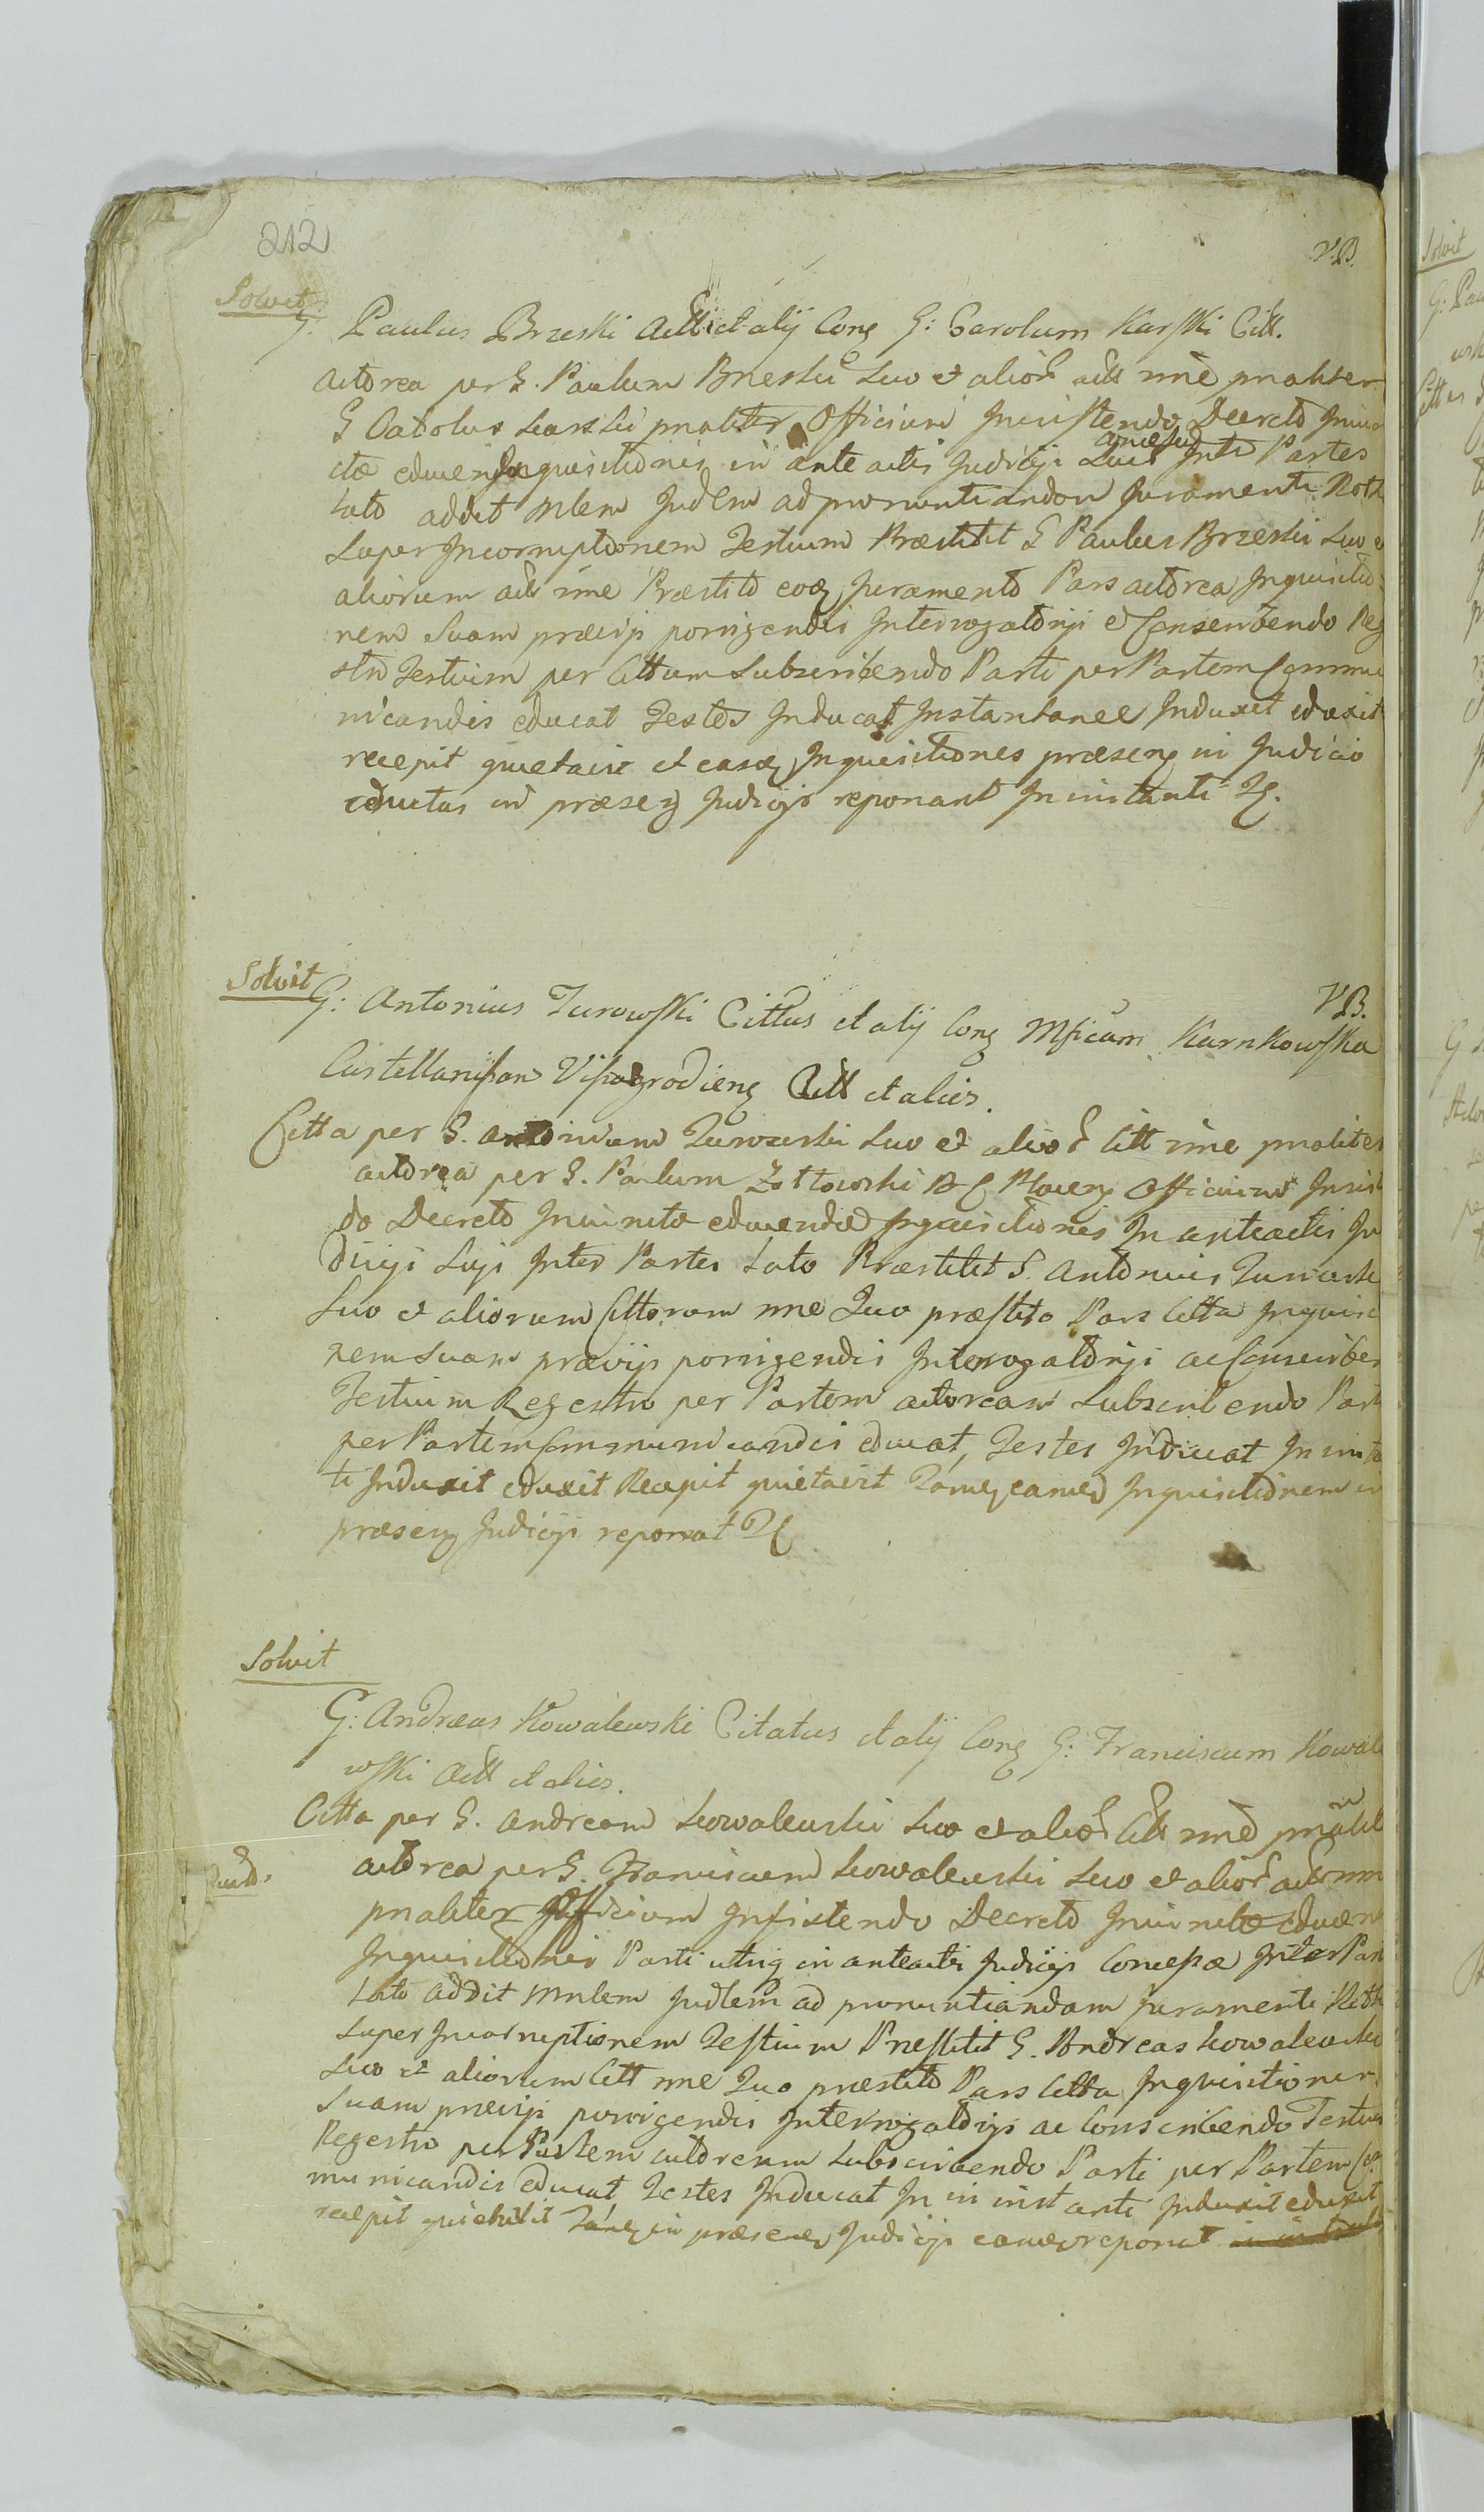 212
V.B.
Solvit
G. Paulus Brzeski Actt et alij Conq G: Carolum Karski Citt.
actorea per G. Paulum Brzeski suo et alior actt nne pnaliter
G Carolus Karski pnaliter Officium Insistendo Decreto Iniun
ctæ educendæ Inquisitionis in anteactis Judicijs Inter Partes
Lato addit Mlem Judlem ad pronuntiandam Juramenti Roth
super Incorruptionem Testium Præstitit G Paulus Brzeski suo e
aliorum actt nne Præstito eoq Juramento Pars actorea Inquisitio
nem Suam prævijs porrigendis Interrogatorijs et Conscribendo Reg
stro Testium per Cittum Subscribendo Parti per Partem Commu
nicandis educat Testes Inducat Instantanee Induxit eduxit
recepit quietavit et easq Inquisitiones præsenq in Judicio
eductas in præsenq Judicijs reponant In instanti
Solvit
V.B.
G: Antonius Turowski Cittus et alij Conq Mficam Karnkowska
Castellanissam Vissogrodienq Actt et alios.
Citta per G. Antonium Turowski suo et alior Citt nne pnaliter
actorea per G. Paulum Officium Insist
do Decreto Iniunctæ educendæ Inquisitionis In anteactis Ju
dicijs Inter Partes Lato Præstitit G. Antonius Turowski
suo et aliorum Cittorum nne Quo præstito Pars Citta Inquisi
nem Suam prævijs porrigendis Interrogatorijs ac Conscriben
Testium Regestro per Partem actoream Subscribendo Parti
per Partem Communicandis educat, Testes Inducat In insta
ti Induxit eduxit Recepit quietavit Tamq eamq Inquisitionem in
præsenq Judicijs reponat
Solvit
G: Andreas Kowalewski Citatus et alij Conq G: Franciscum Kowale
wski Actt et alios.
Citta per G. Andream Kowalewski suo et alior Citt nne pnalit
actorea per G. Franciscum Kowalewski suo et alior actor nn
pnaliter Officium Insistendo Decreto Iniunctæ educen
Inquisitionis Parti utriq in anteactis Judicijs Concessæ Inter Part
Lato addit Mnlem Judlem ad pronuntiandam Juramenti Roth
super Incorruptionem Testium Præstitit G. Andreas Kowalewski
suo et aliorum Citt nne Quo præstito Pars Citta Inquisitionem
Suam prævijs porrigendis Interrogatorijs ac Conscribendo Testium
Regestro per Partem actoream Subscribendo Parti per Partem Co
municandis educat Testes Inducat In in instanti Induxit eduxit
recepit quietavit Tamq in præsenq Judicijs eamq reponat